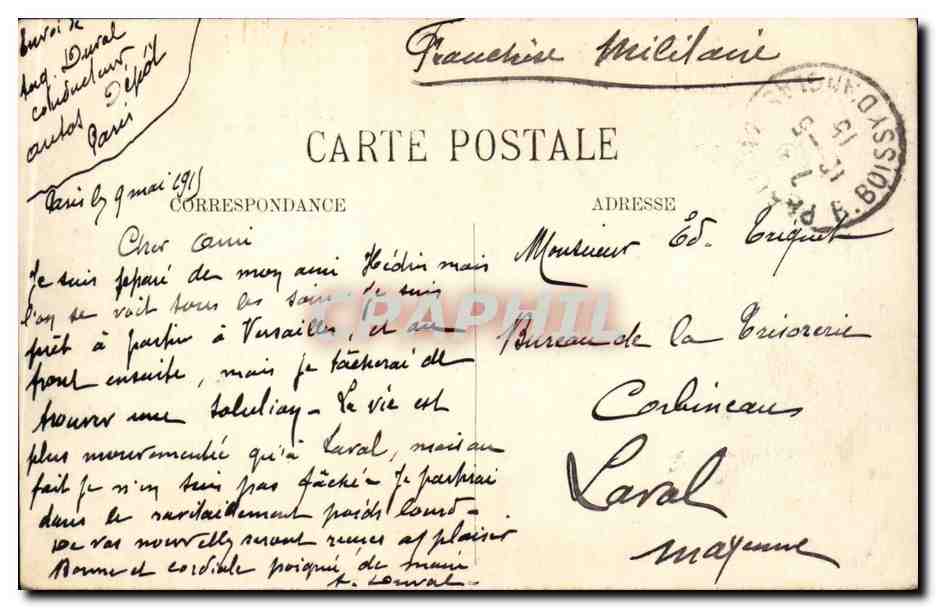 Envoi de
Aug. Duval
conducteur
autos Dépôt
Paris
Franchise Militaire
CARTE POSTALE
PARIS
R. BOISSY D'ANGLAS
15
5
CORRESPONDANCE
ADRESSE
Paris le 9 mai 1915
Cher Ami
Je suis séparé de mon ami Hédin mais
l'on se voit tous les soirs. Je suis
prêt à partir à Versailles, et au
front ensuite, mais je tâcherai de
trouver une solution. La vie est
plus mouvementée qu'à Laval, mais au
fait je n'en suis pas fâché. Je partirai
dans le ravitaillement poids lourd.
De vos nouvelles seront reçues av plaisir
Bonne et cordiale poignée de main
A. Duval
Monsieur Ed. Triquet
Bureau de la Trésorerie
Corbineau
Laval
Mayenne
CRAPHIL